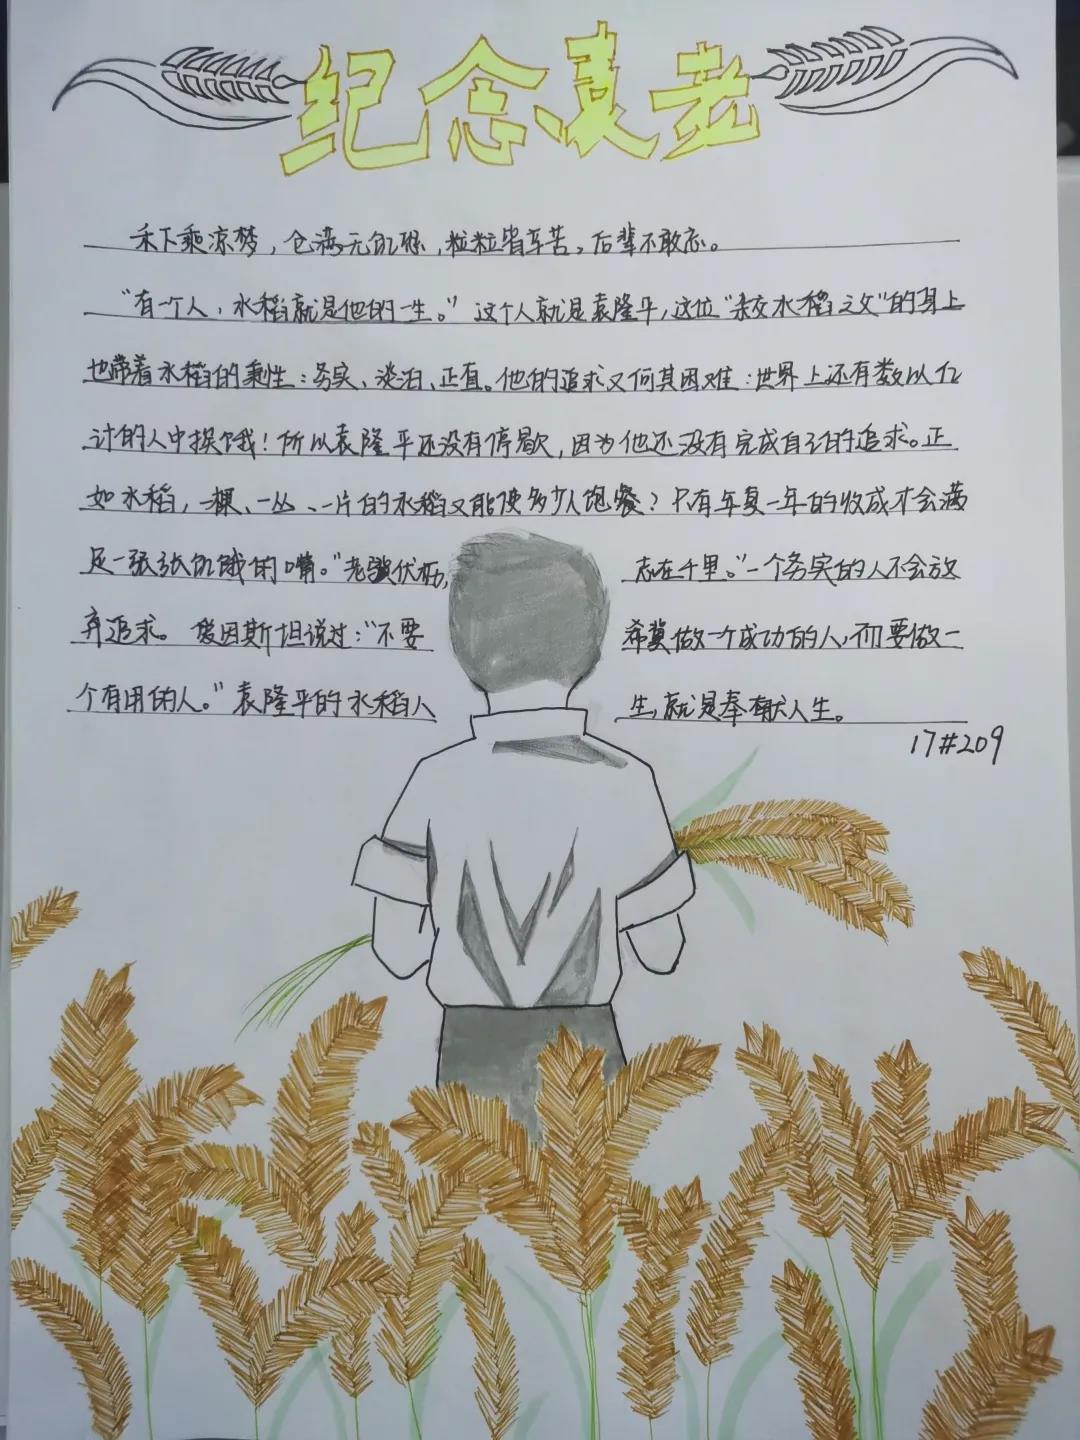 纪念袁老
禾下乘凉梦，仓满无饥愁，粒粒皆辛苦，后辈不敢忘。
"有一个人，水稻就是他的一生。"这个人就是袁隆平，这位"杂交水稻之父"的身上
也带着水稻的秉性：务实、淡泊、正直。他的追求又何其困难：世界上还有数以亿
计的人中挨饿！所以袁隆平还没有停歇，因为他还没有完成自己的追求。正
如水稻，一棵、一丛、一片的水稻又能使多少人饱餐？只有年复一年的收成才会满
足一张张饥饿的嘴。"老骥伏枥，志在千里。"一个务实的人不会放
弃追求。爱因斯坦说过："不要希冀做一个成功的人，而要做一
个有用的人。"袁隆平的水稻人生，就是奉献人生。
17#209